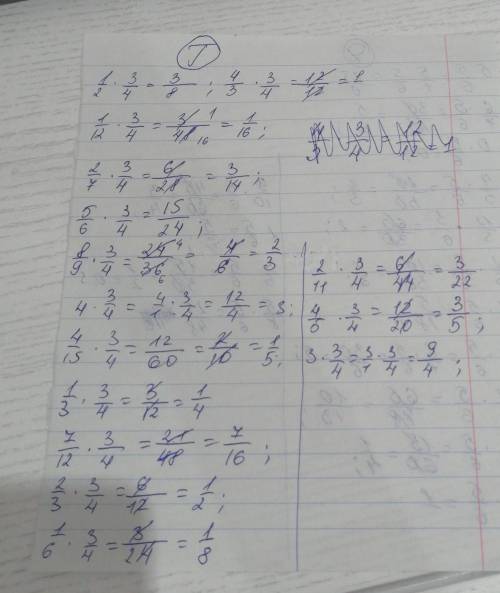 T
1/2 · 3/4 = 3/8 ; 4/3 · 3/4 = 12/12 = 1
1/12 · 3/4 = 3/48 1 16 = 1/16 ;
2/7 · 3/4 = 6/28 = 3/14 ;
5/6 · 3/4 = 15/24 ;
8/9 · 3/4 = 24/36 4 6 = 4/6 = 2/3
4 · 3/4 = 4/1 · 3/4 = 12/4 = 3 ;
4/15 · 3/4 = 12/60 = 2/10 = 1/5 ;
1/3 · 3/4 = 3/12 = 1/4
7/12 · 3/4 = 21/48 = 7/16 ;
2/3 · 3/4 = 6/12 = 1/2 ;
1/6 · 3/4 = 3/24 = 1/8
2/11 · 3/4 = 6/44 = 3/22
4/5 · 3/4 = 12/20 = 3/5 ;
3 · 3/4 = 3/1 · 3/4 = 9/4 ;